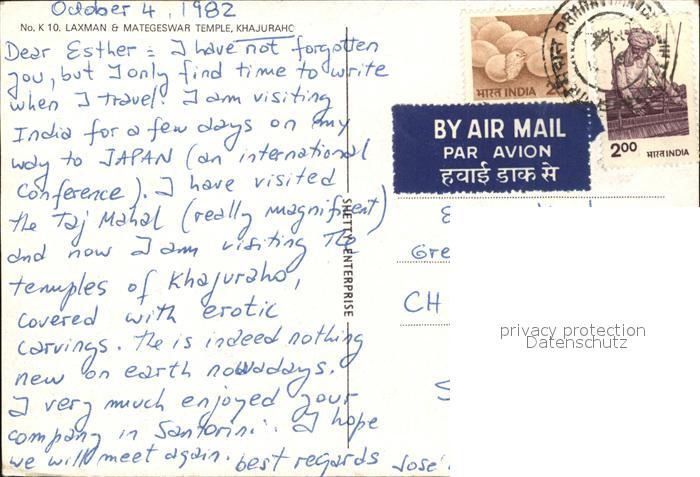 October 4, 1982
No. K 10. LAXMAN & MATEGESWAR TEMPLE, KHAJURAHO
Dear Esther: I have not forgotten
you, but I only find time to write
when I travel. I am visiting
India for a few days on my
way to JAPAN (an international
conference). I have visited
the Taj Mahal (really magnificent)
and now I am visiting the
temples of Khajuraho,
covered with erotic
carvings. The is indeed nothing
new on earth nowadays.
I very much enjoyed your
company in Santorini. I hope
we will meet again. best regards José
SHETTY ENTERPRISE
भारत INDIA
2.00 भारत INDIA
BY AIR MAIL
PAR AVION
हवाई डाक से
E
Gre
CH
S
privacy protection
Datenschutz